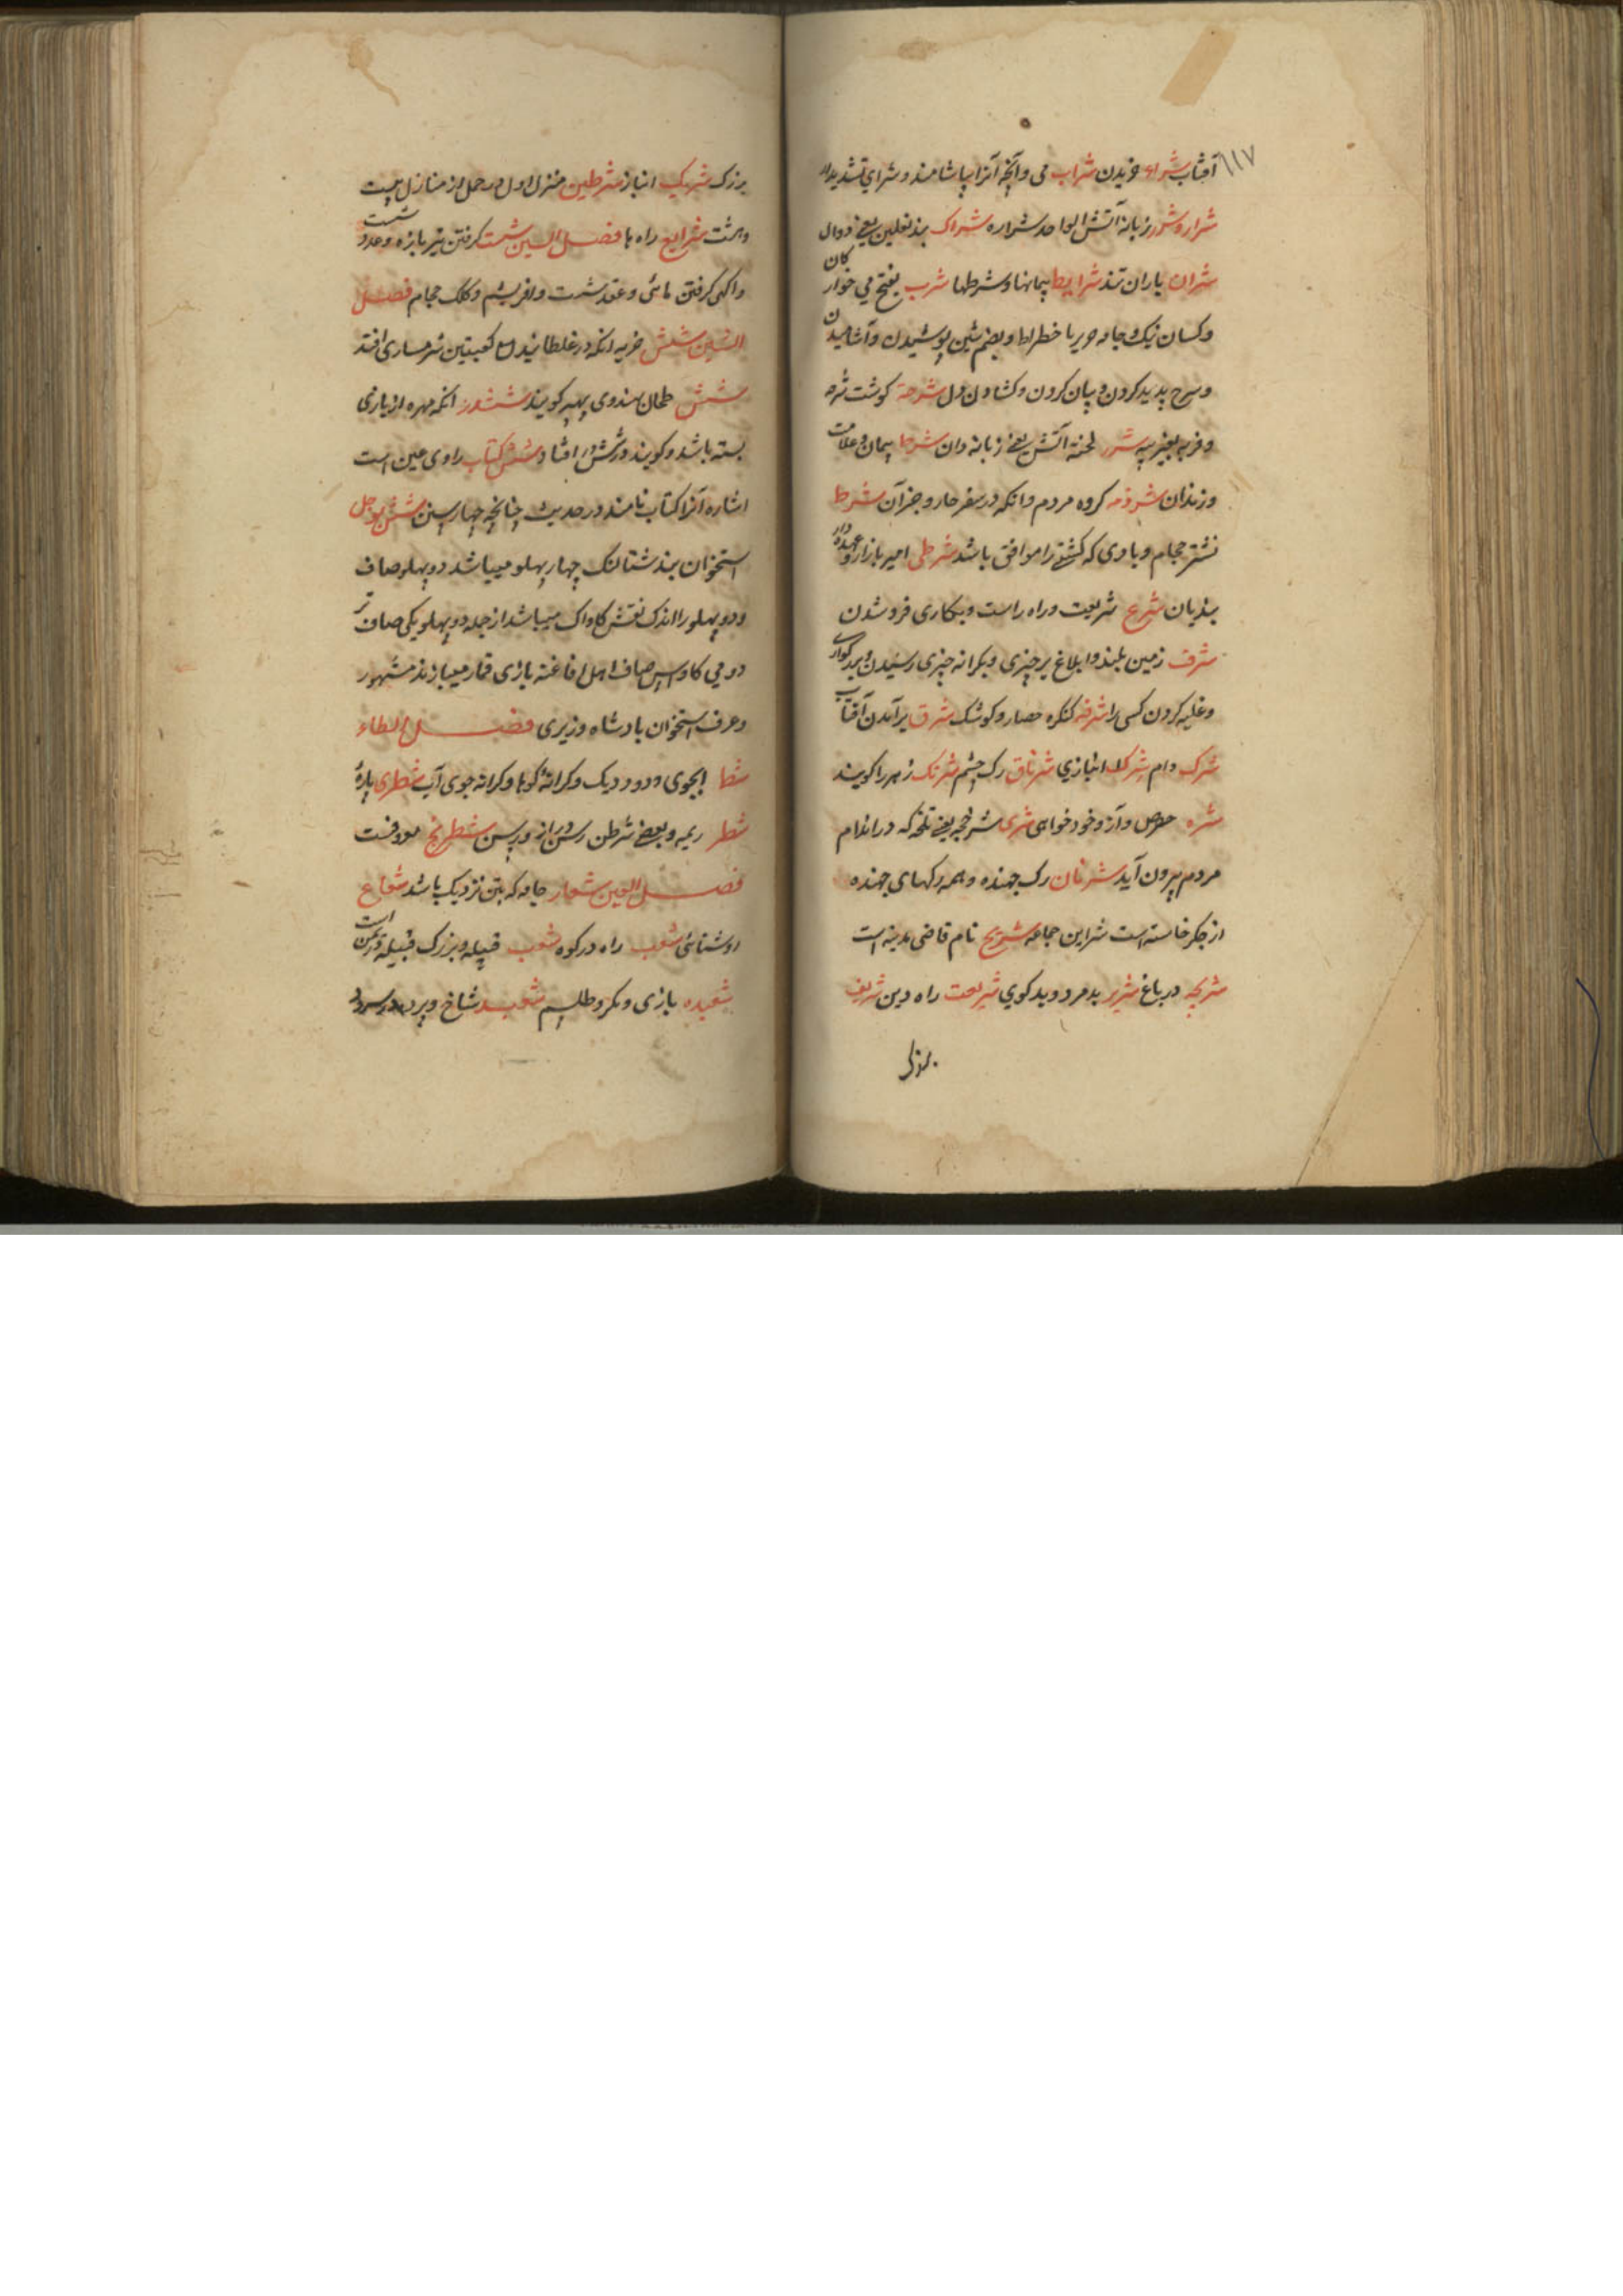 ۱۱۷
آفتاب شراء خریدن شراب می و آنچه آنرا بیاشامند و شرای تشدید
شرار و شرر زبانه آتش الواحد شراره شراک بند نعلین یعنی دوال
شران باران تند شرایط پیمانها و شرطها شرب بفتح می خوارکان
و کسان نیک و جامه حریر با خطراط و بضم شین پوشیدن و آشامیدن
و سرح پدید کردن و بیان کردن و کشادن دل شرحة کوشت شرحه
و فربه بغیر پیه شرر لحنه آتش یعنی زبانه دان شرط پیمان و علامت
و زندان شرذمه کروه مردم و انکه در سفر حار و جز آن شرط
نشتر حجام و بادی که کشتی را موافق باشد شرطی امیر بازار و عهده دار
بندیان شرع شریعت و راه راست و بکاری فرو شدن
شرف زمین بلند و ابلاغ بر چیزی و بکرانه چیزی رسیدن و بزرکواری
و غلبه کردن کسی را شرفه کنکره حصار و کوشک شرق برآمدن آفتاب
شرک دام شرک انبازی شرناق رک چشم شرنک زهر را کویند
شره حرص و آز و خود خواهی شری شر فجه یعنی تلخه که در اندام
مردم بیرون آید شرنان رک جهنده و همه رکهای جهنده
از جکر خاسته است شراین جماعه شریح نام قاضی مدینه است
شریحه در باغ شریر بد مرد و بد کوی شریعت راه دین شریف
بزرک
بزرک شریک انباز شرطین منزل اول در حمل از منازل بیست
و هشت شرایع راه ها فصل السین شست کرفتن تیر بازه و عدد شست
و اکهی کرفتن ماهی و عقد شست و ابریشم و کلک حجام فصل
الشین شش ضربه انکه در غلطانیدن کعبتین شرمساری افتد
شش طحان هندوی پهپه کویند ششدر انکه مهره از بازی
بسته باشد و کویند در شش افتاد شش کتاب راوی عین است
اشاره آنرا کتاب نامند در حدیث چنانچه چهارپسین شش بوجل
استخوان بند شتالنک چهار پهلو میباشد دو پهلو صاف
و دو پهلو را اندک نقش کاواک میباشد از جمله دو پهلو یکی صاف تر
دومی کاواس صاف اهل افاغنه بازی قمار میبازند مشهور
و عرف استخوان بادشاه وزیری فصل الطاء
شط لبجوی و دود دیک و کرانه کوه و کرانه جوی آب شطری پاره
شطر ریمه و بعضی شرطن رسن دراز و رسن شطرنج معروفست
فصل العین شعار جامه که بتن نزدیک باشد شعاع
روشنائی شعب راه در کوه شعب قبیله و بزرک قبیله در یمن است
شعبده بازی و مکر و طلسم شعبه شاخ و